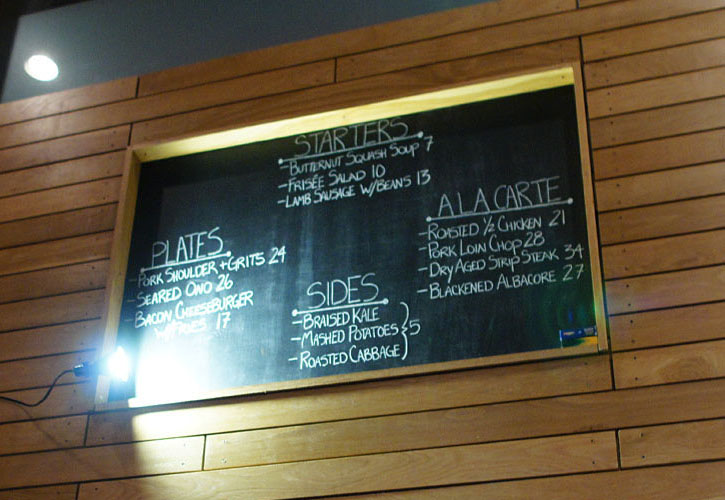 STARTERS
-BUTTERNUT SQUASH SOUP 7
-FRISÉE SALAD 10
-LAMB SAUSAGE W/BEANS 13
A LA CARTE
-ROASTED ½ CHICKEN 21
-PORK LOIN CHOP 28
-DRY AGED STRIP STEAK 34
-BLACKENED ALBACORE 27
PLATES
-PORK SHOULDER + GRITS 24
-SEARED ONO 26
-BACON CHEESEBURGER
W/FRIES 17
SIDES
-BRAISED KALE
-MASHED POTATOES 5
-ROASTED CABBAGE